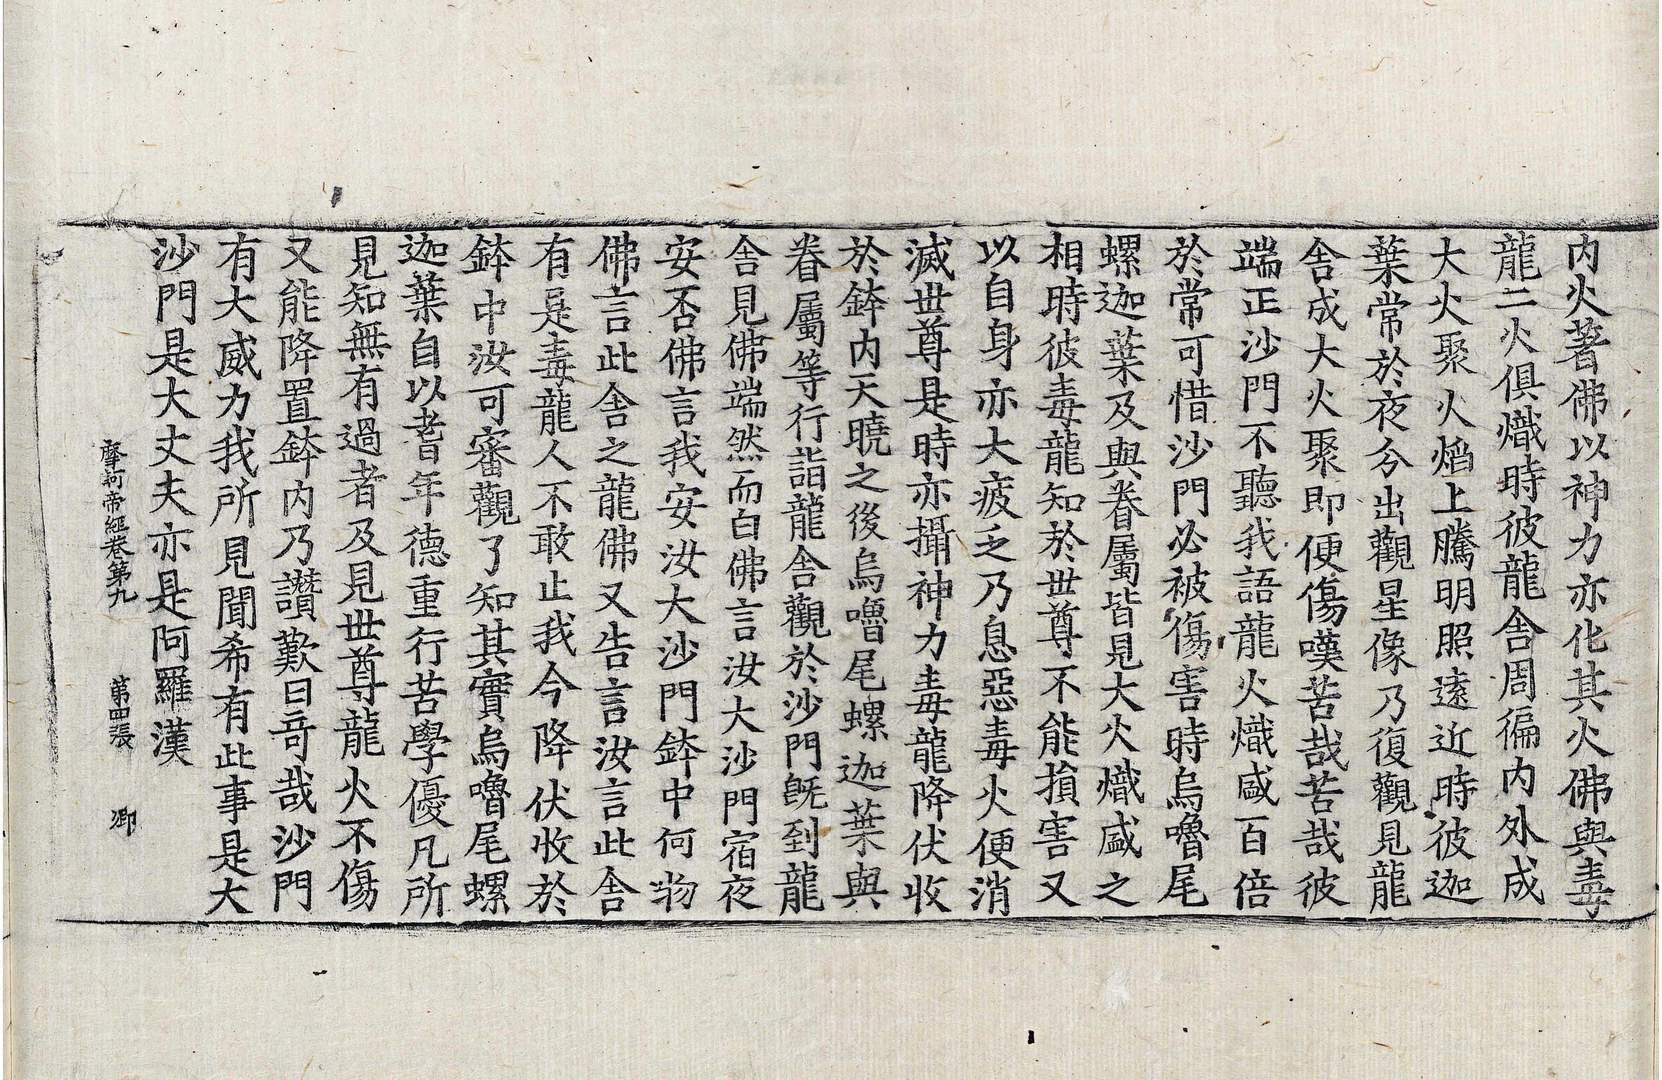 内火著佛以神力亦化其火佛與毒
龍二火俱熾時彼龍舎周徧内外成
大火聚火焰上騰明照逺近時彼迦
葉常於夜今出觀星像乃復觀見龍
舎成大火聚即便傷嘆苦哉苦哉彼
端正沙門不聽我語龍火熾盛百倍
於常可惜沙門必被傷害時烏嚕尾
螺迦葉及與眷屬皆見大火熾盛之
相時彼毒龍知於世尊不能損害又
以自身亦大疲乏乃息惡毒火便消
滅世尊是時亦攝神力毒龍降伏收
於鉢内天曉之後烏嚕尾螺迦葉與
眷屬等行詣龍舎觀於沙門旣到龍
舎見佛端然而白佛言汝大沙門宿夜
安否佛言我安汝大沙門鉢中何物
佛言此舎之龍佛又告言汝言此舎
有是毒龍人不敢止我今降伏收於
鉢中汝可審觀了知其實烏嚕尾螺
迦葉自以耆年德重行苦學優凡所
見知無有過者及見世尊龍火不傷
又能降置鉢内乃讚歎曰竒哉沙門
有大威力我所見聞希有此事是大
沙門是大丈夫亦是阿羅漢
摩訶帝經卷第九 第四張 卿